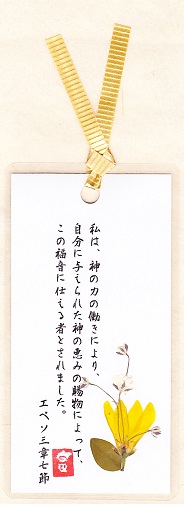 私は、神の力の働きにより、
自分に与えられた神の恵みの賜物によって、
この福音に仕える者とされました。
エペソ三章七節